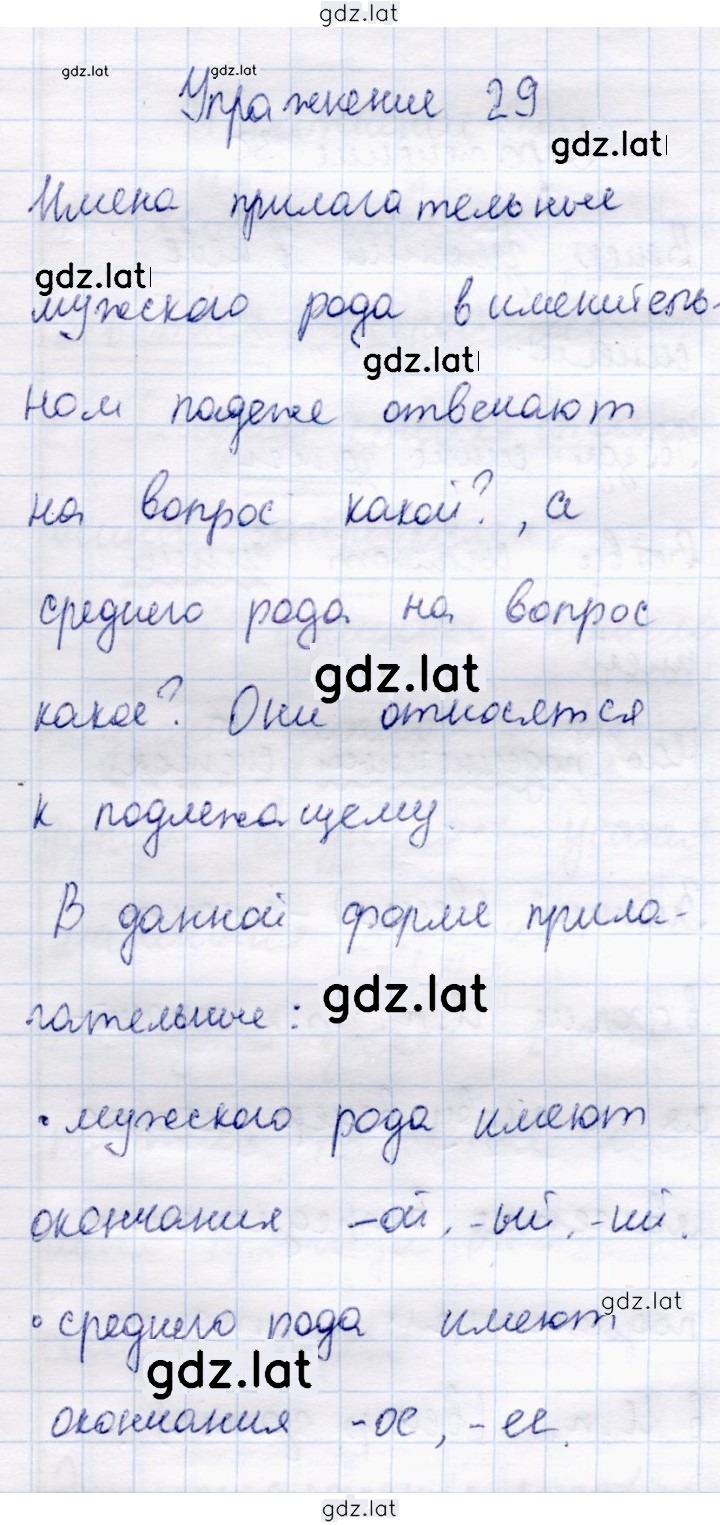 gdz.lat
gdz.lat gdz.lat
Упражнение 29
gdz.lat
Имена прилагательные
gdz.lat
мужского рода в именитель-
gdz.lat
ном падеже отвечают
на вопрос какой?, а
среднего рода на вопрос
gdz.lat
какое? Они относятся
к подлежащему.
В данной форме прила-
gdz.lat
гательные:
• мужского рода имеют
окончания -ой, -ый, -ий.
gdz.lat
• среднего рода имеют
gdz.lat
окончания -ое, -ее.
gdz.lat